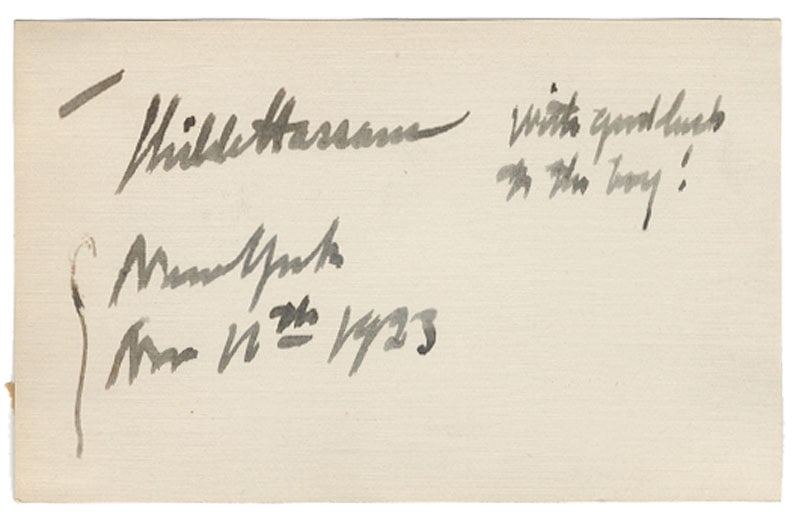 Childe Hassam
with good luck
to the boy!
New York
Nov 11th 1923